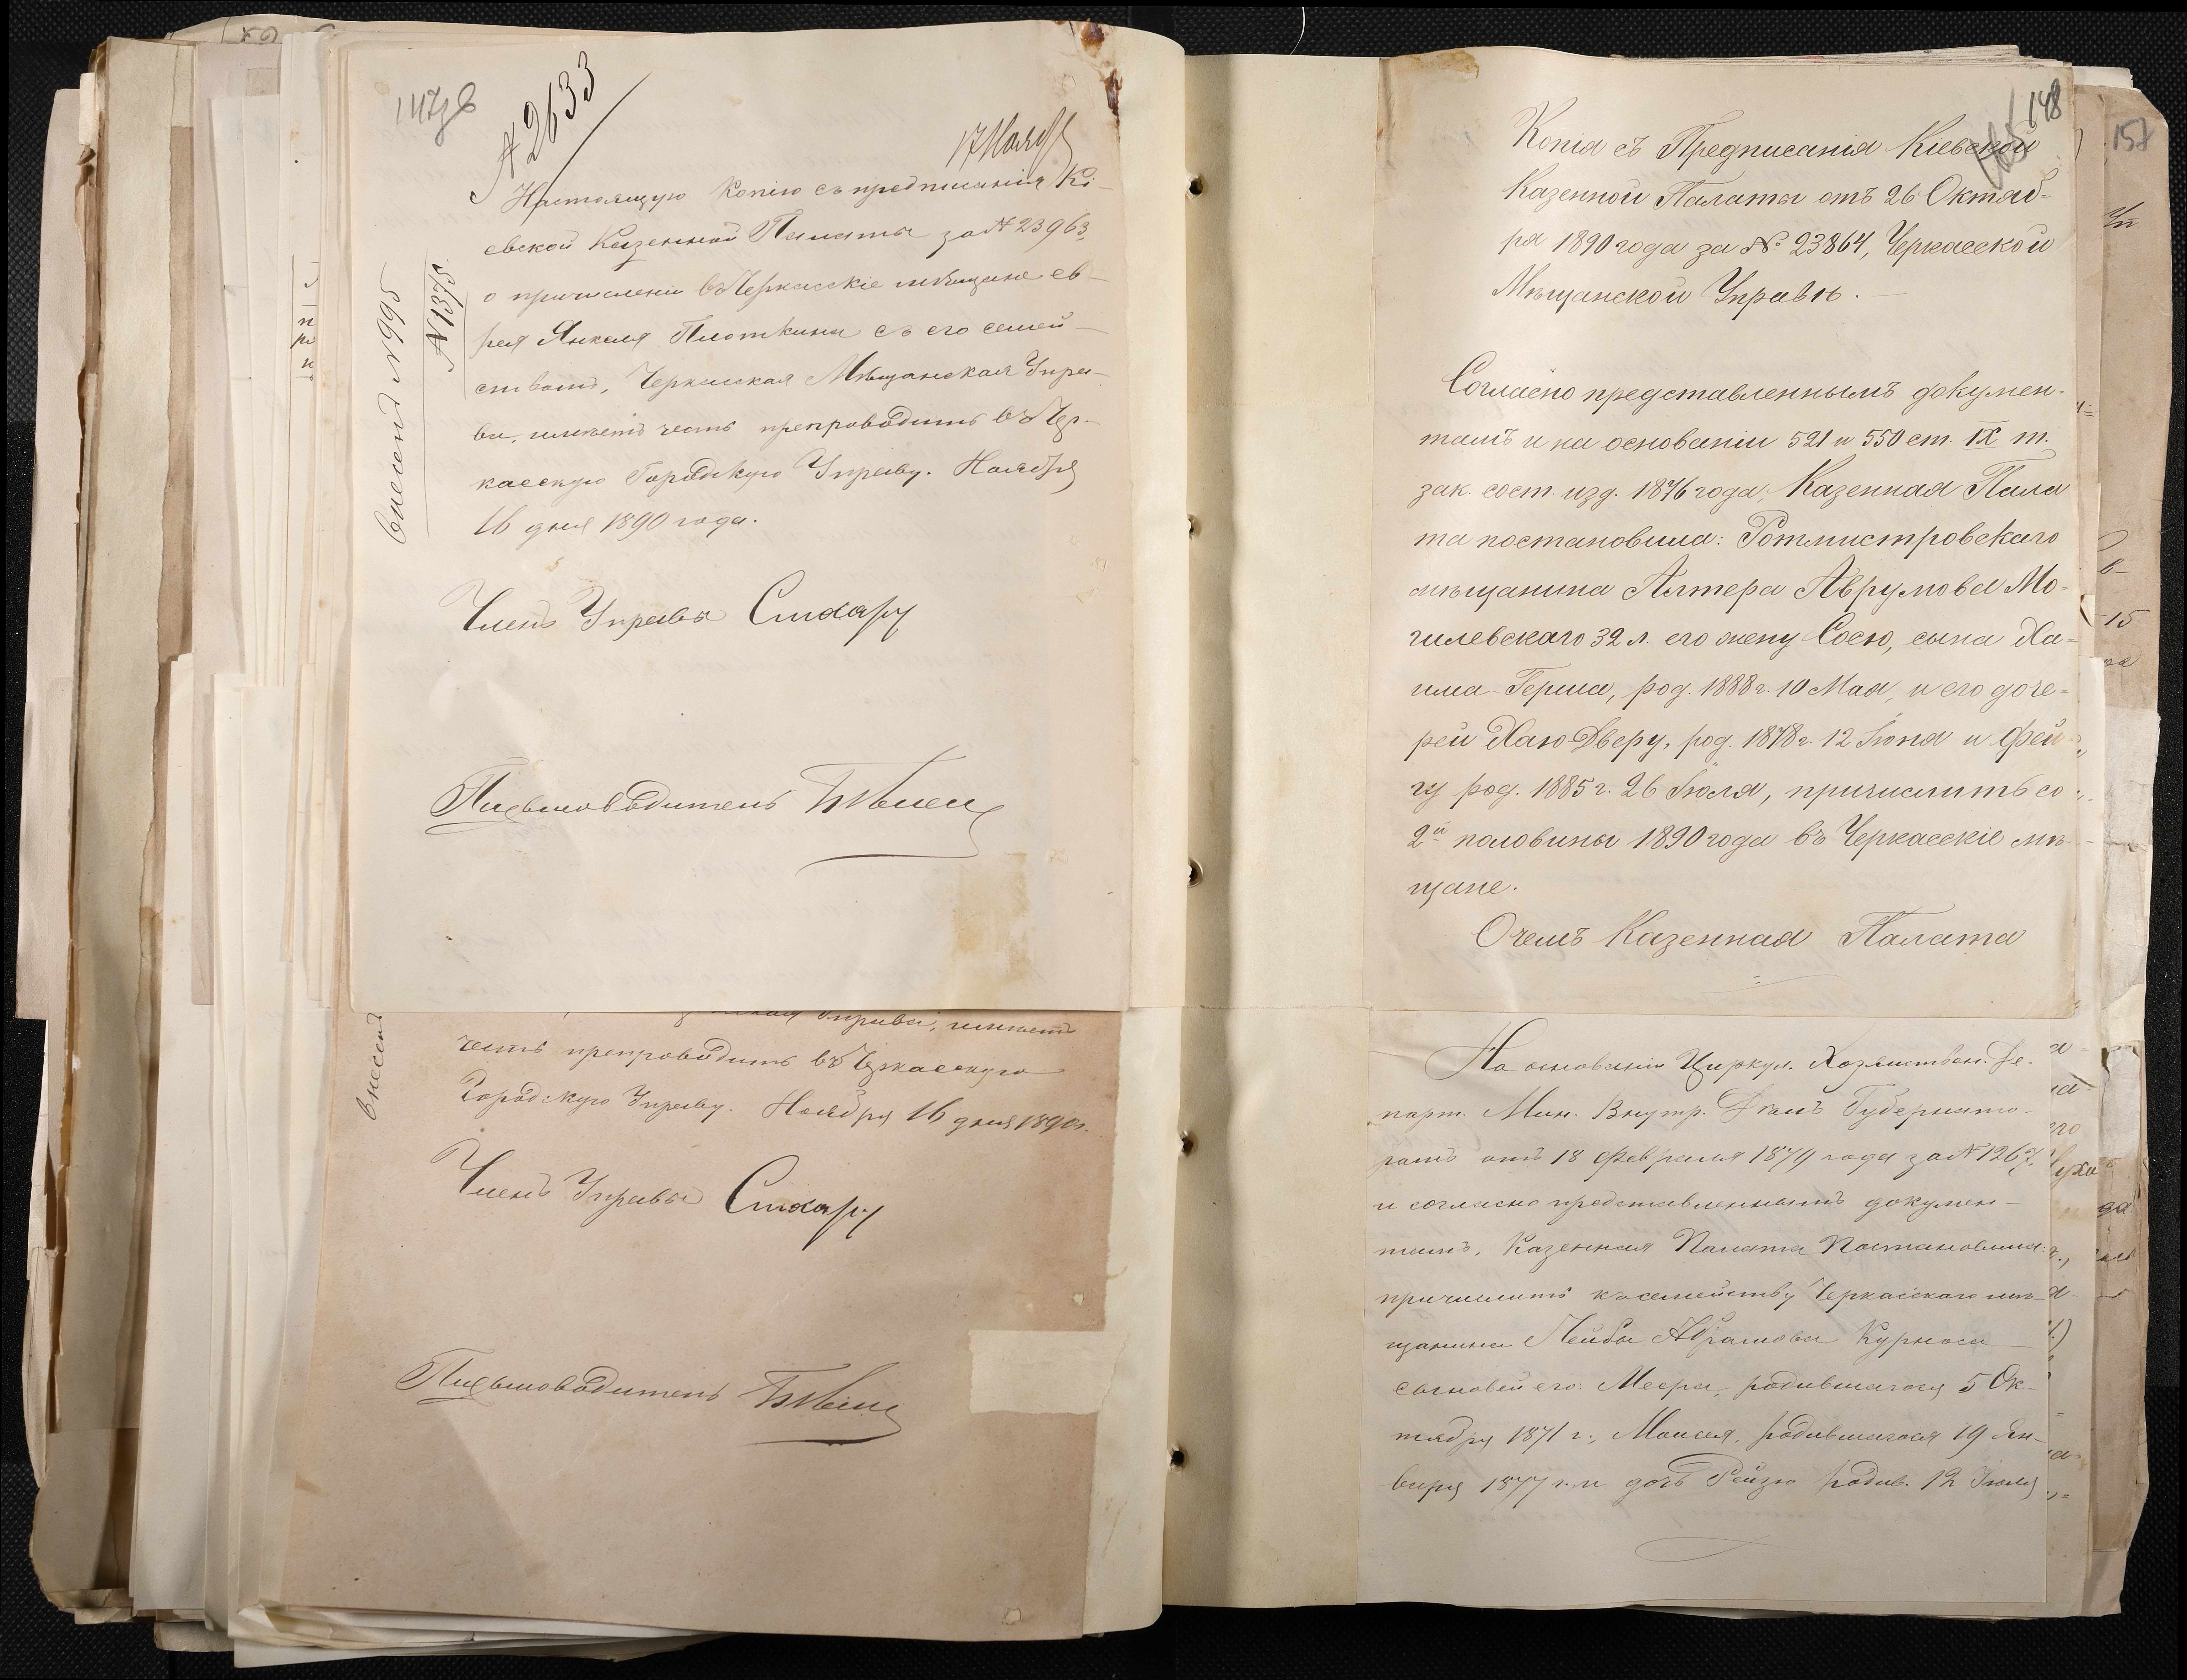 147об
№ 2633
17 Нояб
Настоящую копію съ предписанія Кі-
евской Казенной Палаты за № 23963,
о причисленіи въ Черкасскіе мѣщане ев-
рея Янкеля Плоткина съ его семей-
ствомъ, Черкасская Мѣщанская Упра-
ва, имѣетъ честь препроводить въ Чер-
касскую Городскую Управу. Ноября
16 дня 1890 года.
Членъ Управы
Письмоводитель
внесено № 995
№ 1375
Управа, имѣетъ
честь препроводить въ Черкасскую
Городскую Управу. Ноября 16 дня 1890 г.
Членъ Управы
Письмоводитель
внесено
148
Копія съ Предписанія Кіевской
Казенной Палаты отъ 26 Октяб-
ря 1890 года за № 23864, Черкасской
Мѣщанской Управѣ.
Согласно представленнымъ докумен-
тамъ и на основаніи 521 и 550 ст. IX т.
зак. сост. изд. 1876 года, Казенная Пала
та постановила: Ротмистровскаго
мѣщанина Алтера Аврумова Мо-
гилевскаго 32 л. его жену Сосю, сына Ха-
има-Герша, род. 1888 г. 10 Мая, и его доче-
рей Хаю-Дверу, род. 1878 г. 12 Іюня и Фей-
гу род. 1885 г. 26 Іюля, причислить со
2й половины 1890 года въ Черкасскіе мѣ-
щане.
О чемъ Казенная Палата
На основаніи Циркул. Хозяйствен. Де-
парт. Мин. Внутр. Дѣлъ Губернато-
рамъ отъ 18 Февраля 1879 года за № 1267,
и согласно представленнымъ докумен-
тамъ, Казенная Палата Постановила:
причислить къ семейству Черкасскаго мѣ-
щанина Лейбы Абрамова Курноса
сыновей его: Меера, родившагося 5 Ок-
тября 1871 г., Моисея, родившагося 19 Ян-
варя 1877 г. и дочь Рейзю родив. 12 Іюля
157